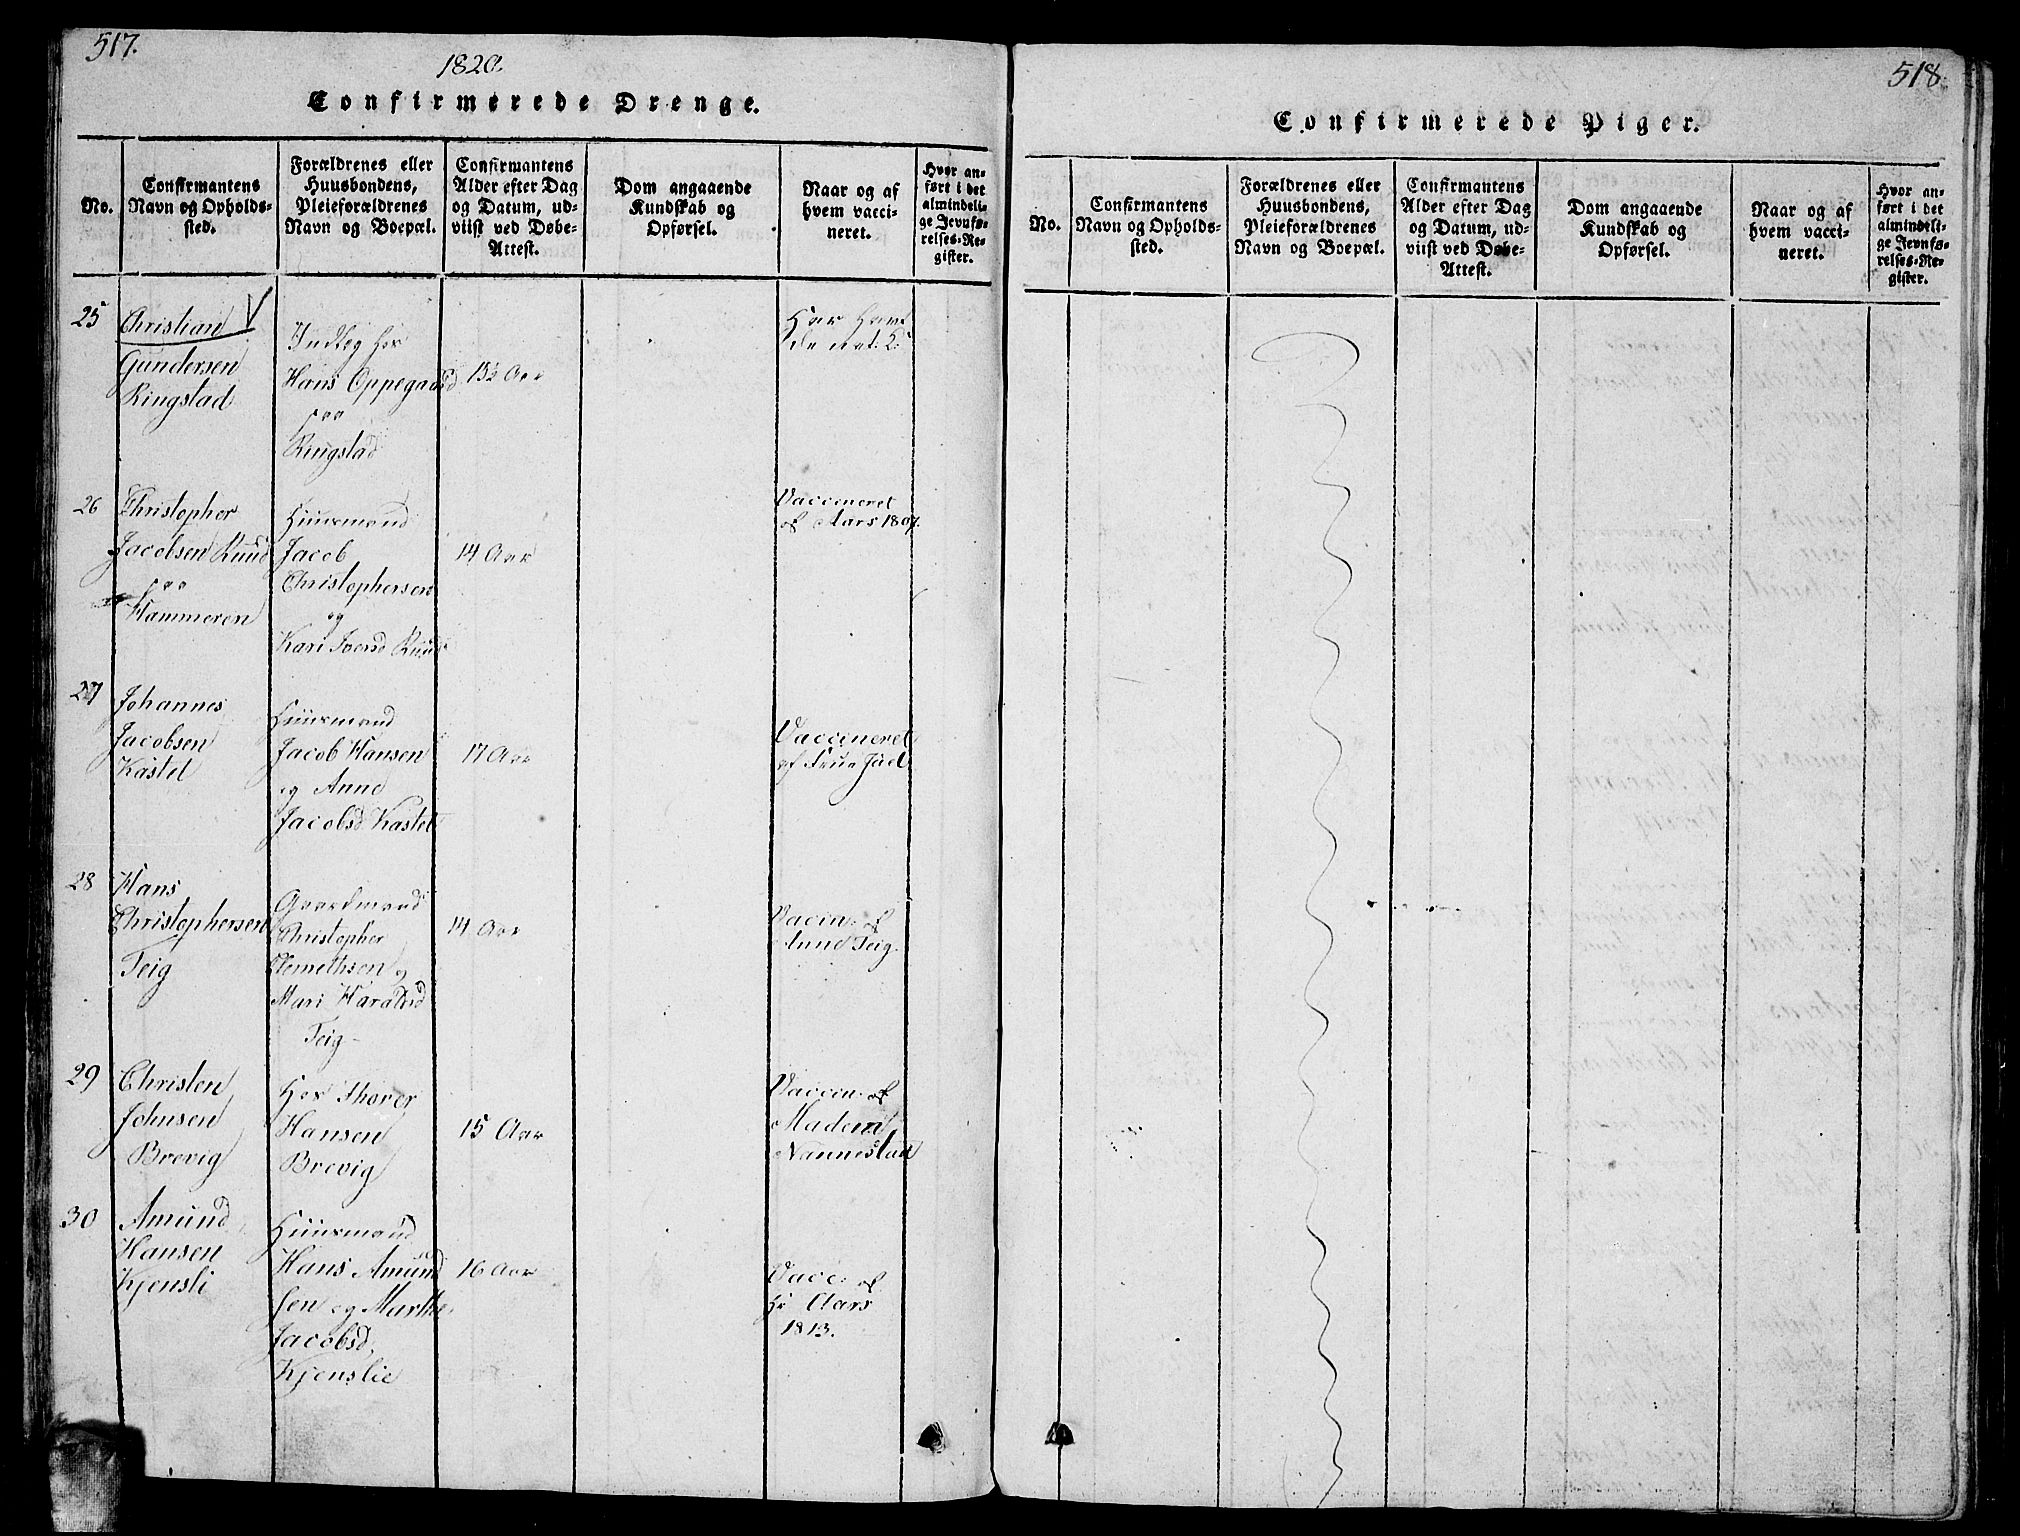 517.
1820
Confirmerede Drenge.
No.
Confirmantens
Navn og Opholds-
sted.
Forældrenes eller
Huusbondens,
Pleieforældrenes
Navn og Boepæl.
Confirmantens
Alder efter Dag
og Datum, ud-
viist ved Døbe-
Attest.
Dom angaaende
Kundskab og
Opførsel.
Naar og af
hvem vacci-
neret.
Hvor an-
ført i det
almindeli-
ge Jevnfø-
relses-Re-
gister.
25
Christian
Gundersen
Ringstad
Indtog hos
Hans Oppegaard
paa
Ringstad
15½ Aar
Har Hav
de nat: K:
26
Christopher
Jacobsen Ruud
paa
Hammeren
Huusmand
Jacob
Christophersen
og
Kari Iversd Ruud
14 Aar
Vaccineret
af Aars 1807.
27
Johannes
Jacobsen
Kastet
Huusmand
Jacob Hansen
og Anne
Jacobsd Kastet
17 Aar
Vaccineret
af Frue Juel
28
Hans
Christophersen
Teig
Gaardmand
Christopher
Clemethsen og
Mari Haraldsd
Teig
14 Aar
Vaccin: af
Amund Teig.
29
Christen
Johnsen
Brevig
Hos Thorer
Hansen
Brevig
15 Aar
Vaccin: af
Madem
Nannestad
30
Amund
Hansen
Kjensli
Huusmand
Hans Amund
sen og Marthe
Jacobsd.
Kjenslie
16 Aar
Vacc: af
Hr Aars
1813.
518.
Confirmerede Piger.
No.
Confirmantens
Navn og Opholds-
sted.
Forældrenes eller
Huusbondens,
Pleieforældrenes
Navn og Boepæl.
Confirmantens
Alder efter Dag
og Datum, ud-
viist ved Døbe-
Attest.
Dom angaaende
Kundskab og
Opførsel.
Naar og af
hvem vacci-
neret.
Hvor an-
ført i det
almindeli-
ge Jevnfø-
relses-Re-
gister.